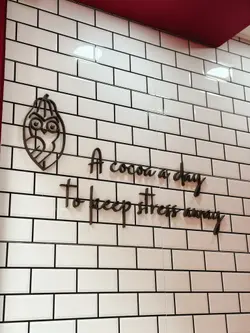 A cocoa a day
to keep stress away